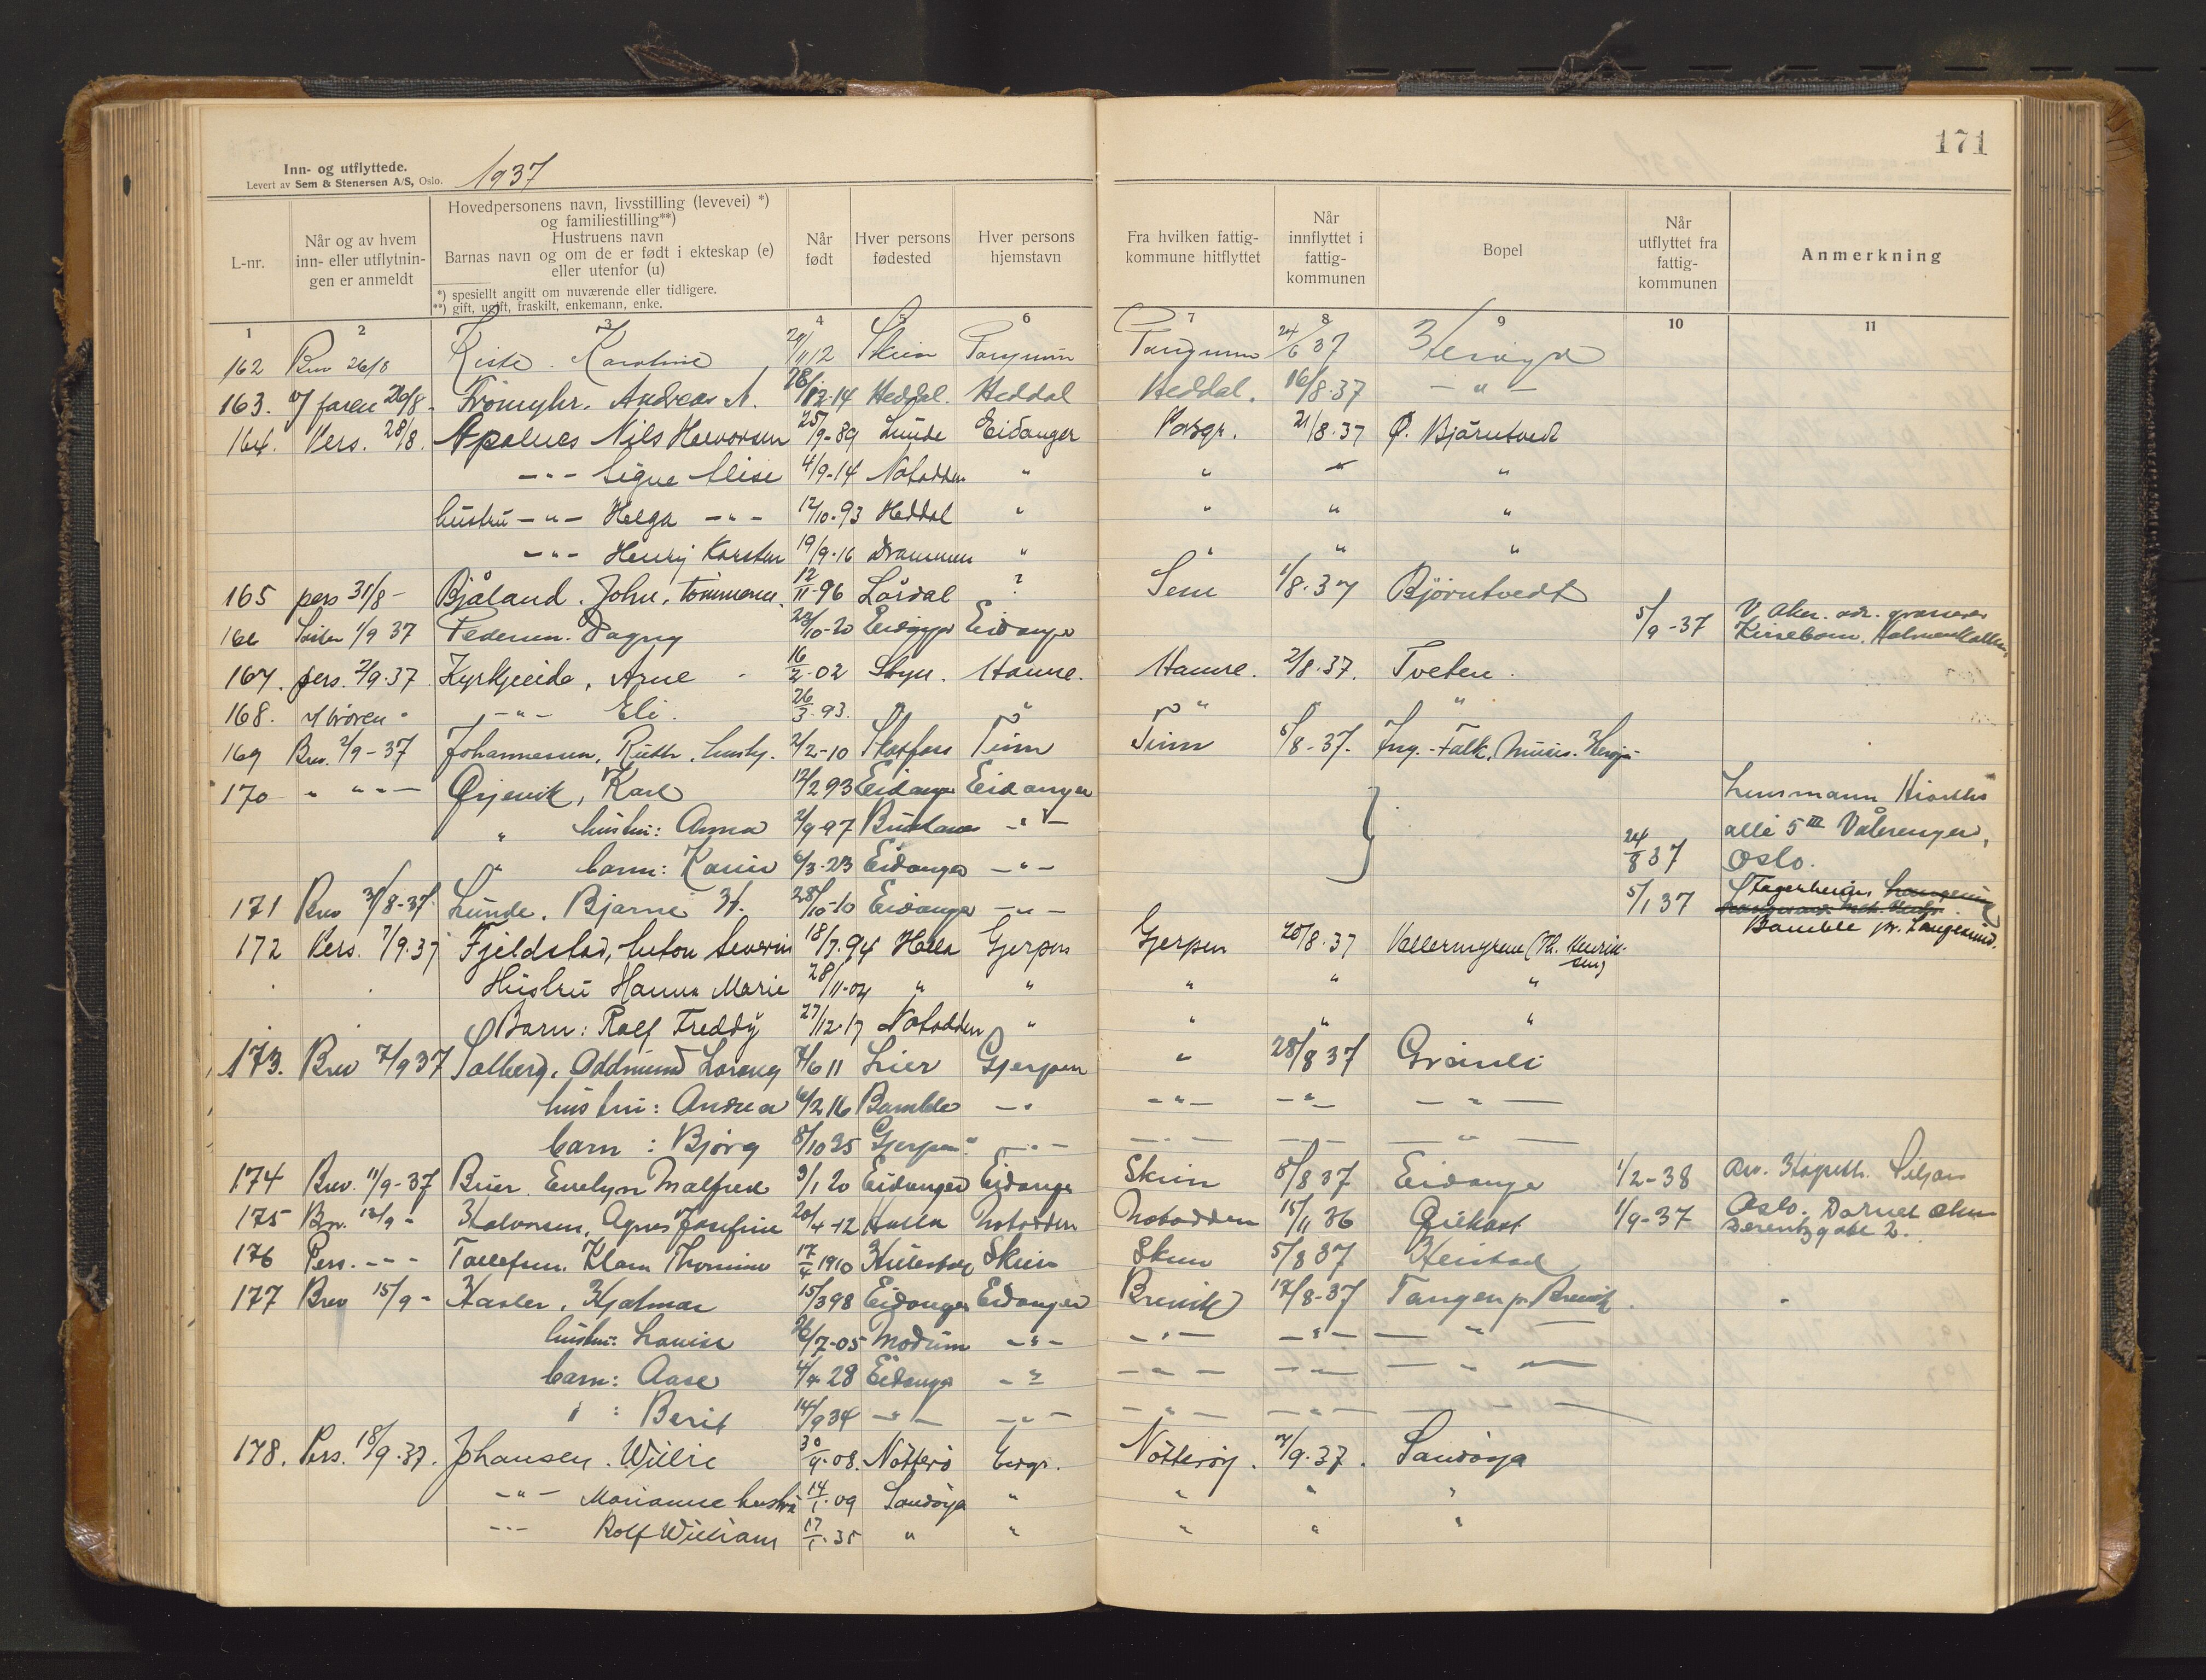 171
Inn- og utflyttede.
Levert av Sem & Stenersen A/S, Oslo.
1937
L-nr.
Når og av hvem inn- eller utflytnin-gen er anmeldt
Hovedpersonens navn, livsstilling (levevei) *) og familiestilling**)
Hustruens navn
Barnas navn og om de er født i ekteskap (e) eller utenfor (u)
*) spesiellt angitt om nuværende eller tidligere.
**) gift, ugift, fraskilt, enkemann, enke.
Når født
Hver persons fødested
Hver persons hjemstavn
Fra hvilken fattig-kommune hitflyttet
Når innflyttet i fattig-kommunen
Bopel
Når utflyttet fra fattig-kommunen
Anmerkning
1 2 3 4 5 6 7 8 9 10 11
162 Brev 26/8 Karoline 29/11 12 Skien 24/6 37
163. v/ faren 26/8 - Andreas A. 28/12-14 Heddal. Heddal Heddal. 16/8.37 - " -
164. Pers. 28/8. Apalnes Nils Halvorsen 25/9-89 Lunde Eidanger Porsgr. 21/8.37 Ø. Bjørntvedt
- " - Signe Elise 4/9-14 Notodden " " " "
hustru - " - Helga - " - 12/10-93 Heddal " " " "
- " - Henry Karsten 19/9-16 Drammen " " " "
165 pers 31/8 - Bjåland. John. tømmerm. 12/11-96 Lårdal ? Sem 1/8.37 Bjørntvedt
166 1/9 37 Pedersen. Dagny 23/10-20 Eidanger 5/9-37 V. Aker. adr. grosserer Kirsebom. Holmenkollen,
167. pers. 2/9.37 Kyrkjeeide, Arne 16/2-02 Stryn. Hamre. Hamre. 2/8.37. Tveten.
168. v/ broren " - " - Eli. 26/3.93. " " " "
169 Brev. 2/9-37 Johannesen, Ruth. hush. 2/2-10 Skotfoss Tinn Tinn 5/8-37. Ing. Falk.
170 " " - " - Ørjevik, Karl 12/2 93 Eidanger Eidanger Lensmann Hiorths
" hustru: Anna 2/9-97 - " - alle 5 III Vålerengen,
" barn: Karin 6/3-23 Eidanger - " - 24/8 37 Oslo.
171 Brev 31/8-37 Lunde. Bjarne H. 28/10-10 Eidanger - " - 5/1 37 Fagerheim,
Bamble pr. Langesund.
172 Pers. 7/9.37 Fjeldstad, Anton Severin 18/7.94 Holla Gjerpen Gjerpen 20/8.37 Vallermyrene (Th. Henriksen)
Hustru Hanna Marie 28/11-04 " " " " "
Barn: Rolf Freddy 27/12-17 Notodden " " " "
173. Brev 7/9 37 Solberg. Oddmund Lorang 7/6 11 Lier Gjerpen " 28/8 37 Grønli
hustru: Andrea 6/2 16 Bamble - " - " - - " - - " -
barn: Bjørg 8/10 35 Gjerpen - " - - " - - " -
174 Brev. 11/9-37 Evelyn Malfred 9/1 20 Eidanger Eidanger Skien 8/8 37 Eidanger 1/2-38 Siljan
175 Brv. 12/9 - Halvorsen, Agnes Josefine 20/4-12 Holla Notodden Notodden 15/11 36 1/9-37 Oslo.
176 Pers. - " - Tallefsen. Klara Thomine 17/4 1910 Skien Skien 5/8 37 Heistad
177 Brev 15/9 - Hasler, Hjalmar 15/3 98 Eidanger Eidanger Brevik 12/8-37 Tangen pr. Brevik.
hustru: Lovise 26/7-05 Modum - " - - " - - " - - " -
barn: Aase 4/4 28 Eidanger - " - - " - - " - - " -
" : Berit 14/9 34 - " - - " - - " - - " -
178. Pers. 18/9.37. Johansen. Willie 30/9-08. Nøtterø Eidgr. Nøtterøy. 7/9.37. Sandøya
- " - Marianne hustru 14/1-09 Sandøya " " " "
- " - Rolf William 17/1-35 " " " " "